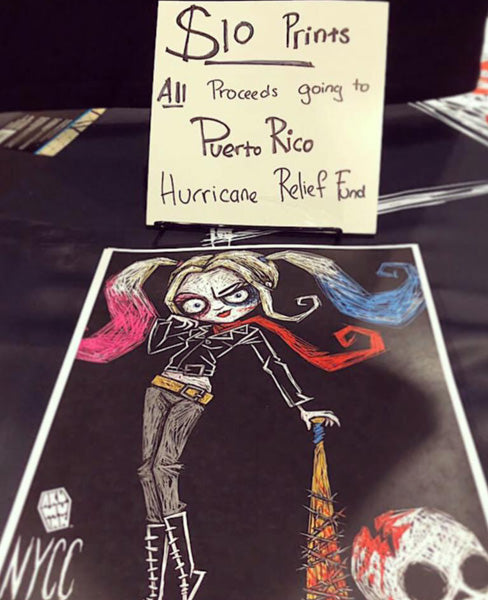 $10 Prints
All Proceeds going to
Puerto Rico
Hurricane Relief Fund
NYCC